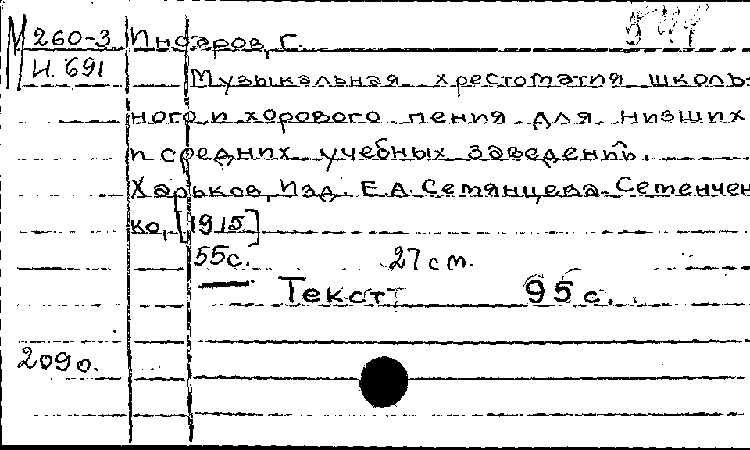 М 260-3 Инсаров, Г.
И. 691
Музыкальная хрестоматия школь-
ного и хорового пения для низших
и средних учебных заведений.
Харьков, Изд. Е.А. Семянцева-Сетенчен
ко, [1915]
55с. 27см.
Текст 95с.
2090.